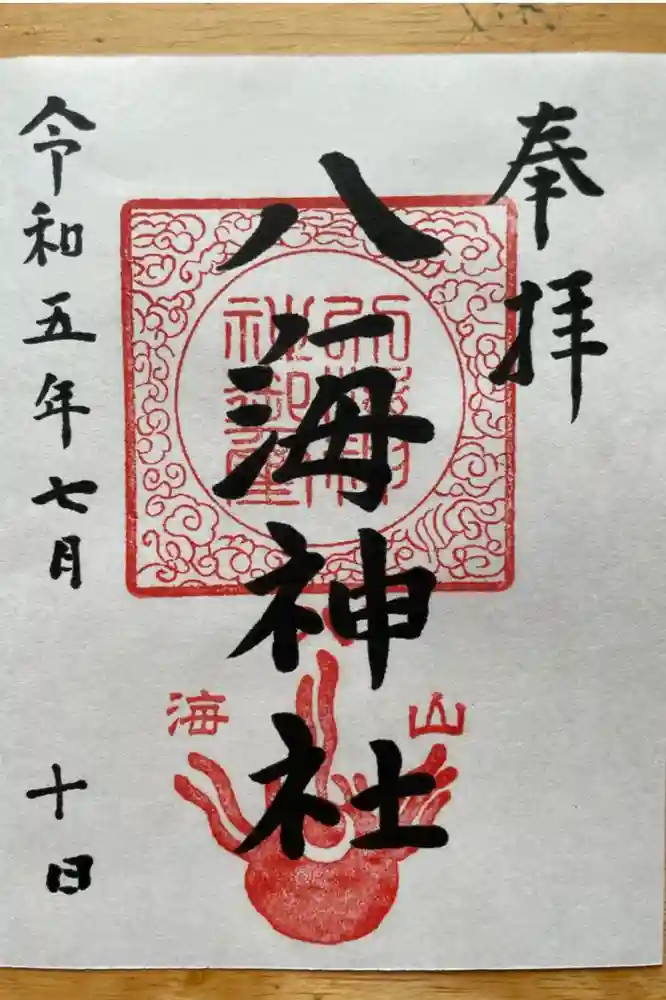 奉拝
八海神社
山
海
令和五年七月十日